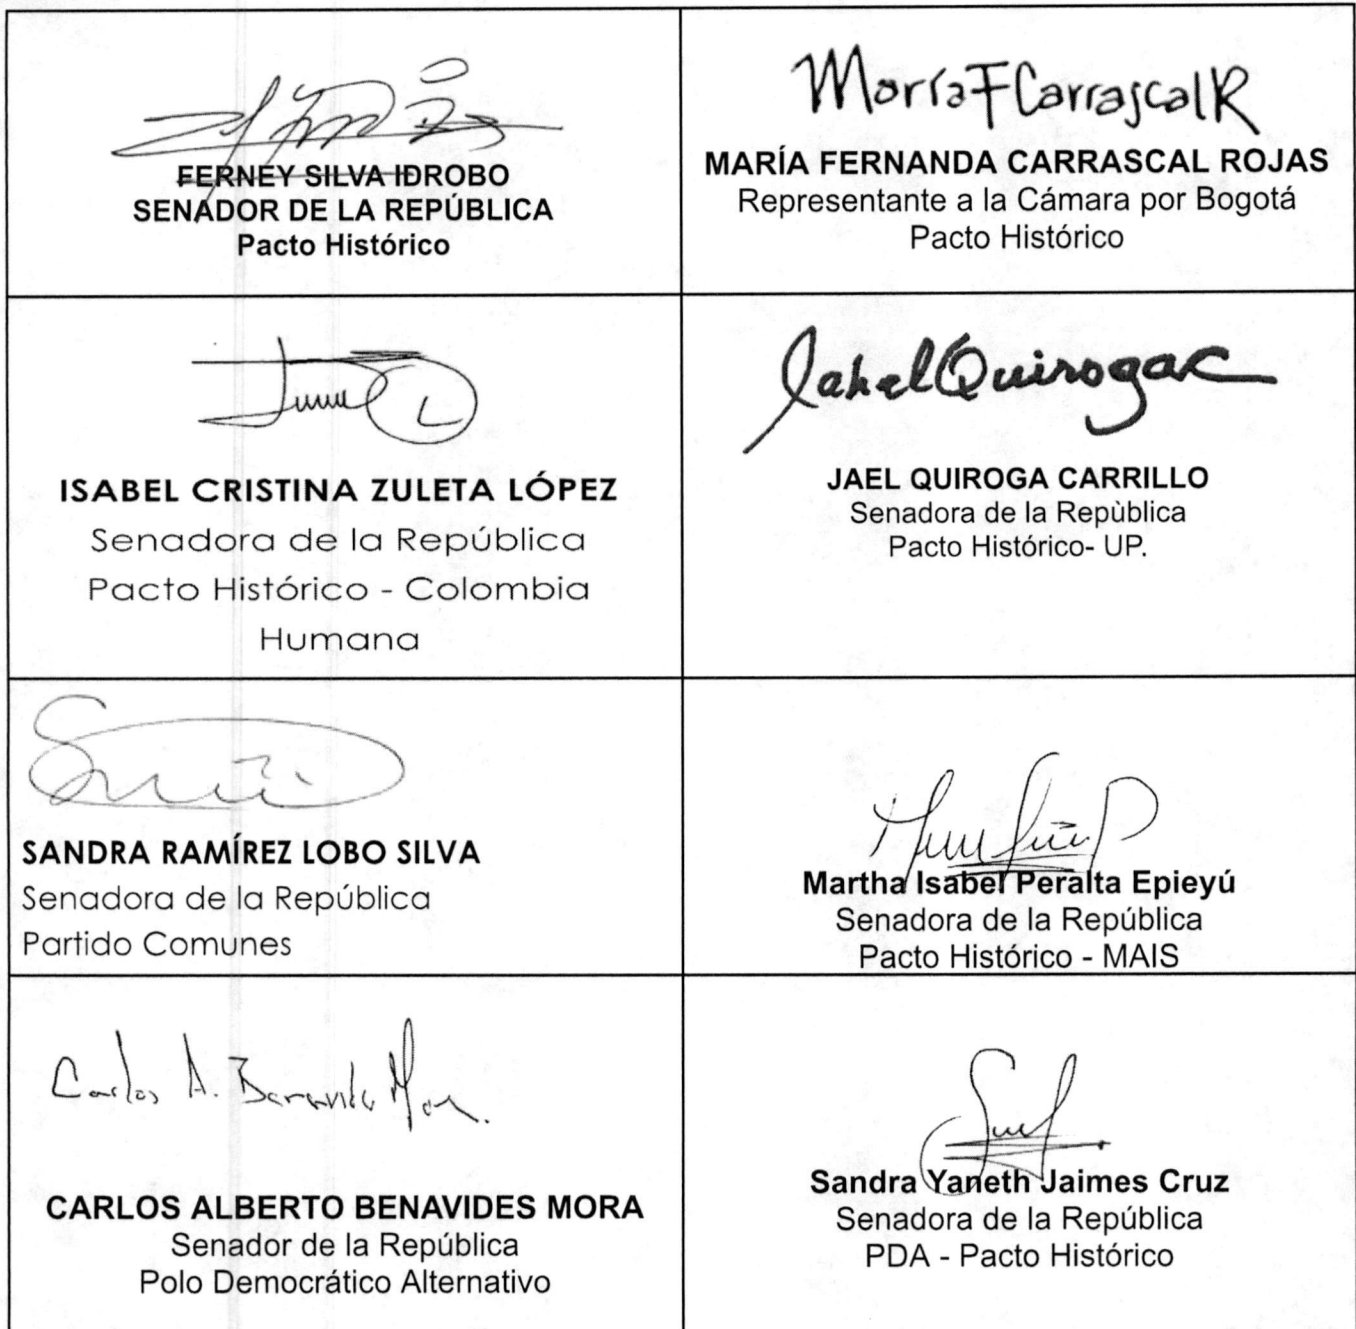 FERNEY SILVA IDROBO
SENADOR DE LA REPÚBLICA
Pacto Histórico
MaríaFCarrascalR
MARÍA FERNANDA CARRASCAL ROJAS
Representante a la Cámara por Bogotá
Pacto Histórico
ISABEL CRISTINA ZULETA LÓPEZ
Senadora de la República
Pacto Histórico - Colombia
Humana
JahelQuirogaC
JAEL QUIROGA CARRILLO
Senadora de la Repùblica
Pacto Histórico- UP.
SANDRA RAMÍREZ LOBO SILVA
Senadora de la República
Partido Comunes
Martha Isabel Peralta Epieyú
Senadora de la República
Pacto Histórico - MAIS
Carlos A. Benavides Mora.
CARLOS ALBERTO BENAVIDES MORA
Senador de la República
Polo Democrático Alternativo
Sandra Yaneth Jaimes Cruz
Senadora de la República
PDA - Pacto Histórico